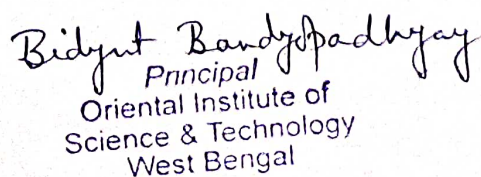 Bidyut Bandyopadhyay
Principal
Oriental Institute of
Science & Technology
West Bengal